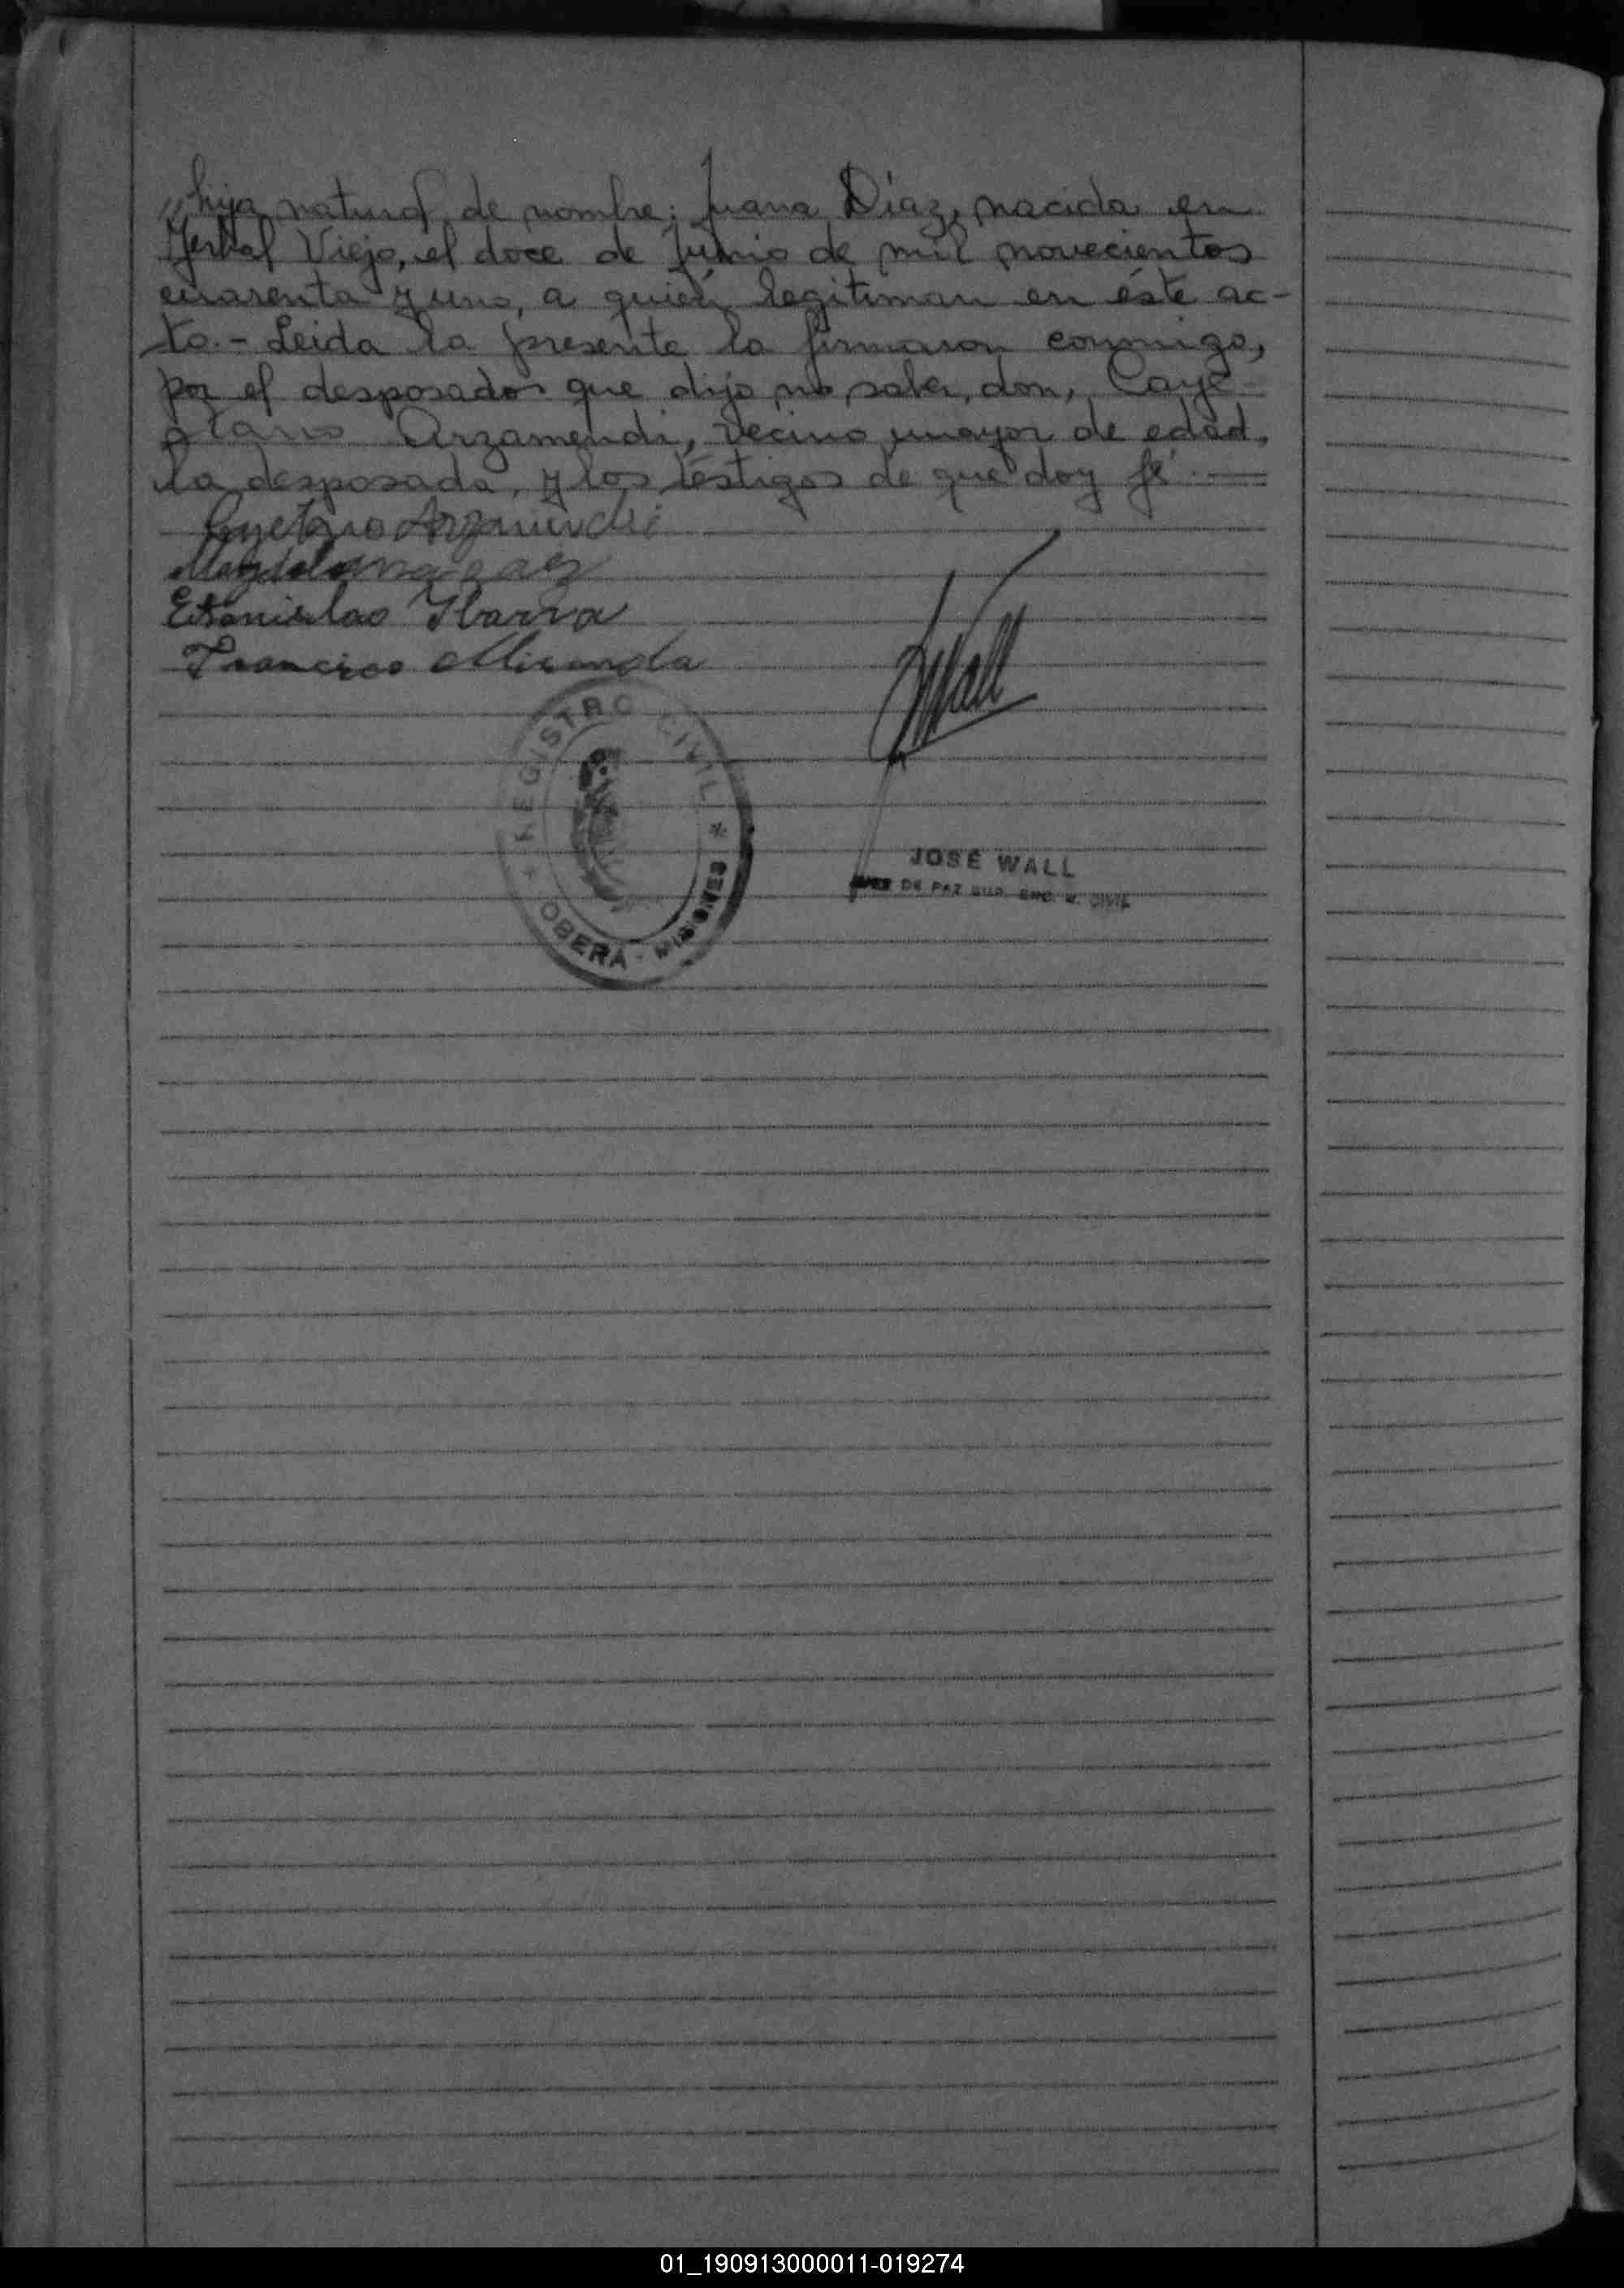 „hija natural de nombre: Juana Díaz, nacida en
Yerbal Viejo, el doce de Junio de mil novecientos
cuarenta y uno, a quién legitiman en éste ac-
to.- Leida la presente la firmaron conmigo,
por el desposador que dijo no saber, don, Caye-
tano Arzamendi, vecino mayor de edad,
la desposada, y los testigos de que doy fé.—
Cayetano Arzamendi
Magdalena
Estanislao Ibarra
Francisco Miranda
JWall
REGISTRO CIVIL
* OBERA - MISIONES *
JOSÉ WALL
JUEZ DE PAZ SUP. ENC. R. CIVIL
01_190913000011-019274